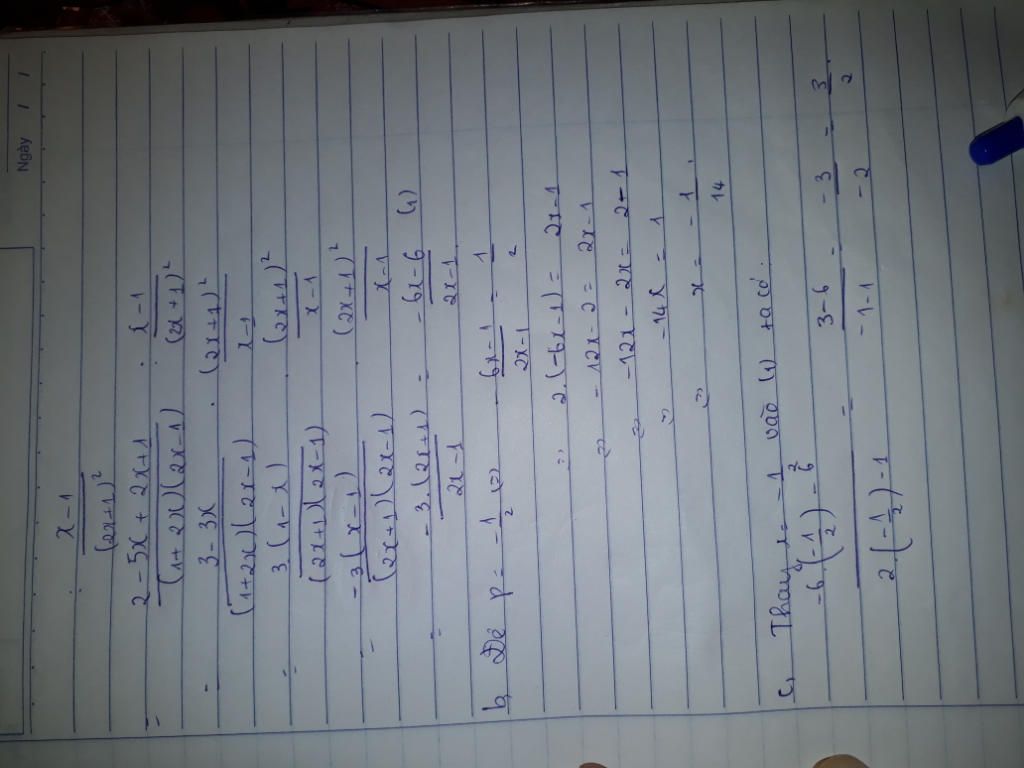 Ngày / /
: x-1/(2x+1)²
= 2-5x+2x+1/(1+2x)(2x-1) . x-1/(2x+1)²
= 3-3x/(1+2x)(2x-1) . (2x+1)²/x-1
= 3(1-x)/(2x+1)(2x-1) . (2x+1)²/x-1
= -3(x-1)/(2x+1)(2x-1) . (2x+1)²/x-1
= -3.(2x+1)/2x-1 = -6x-6/2x-1 (1)
b, Để P = -1/2 (=) -6x-1/2x-1 = 1/2
=) 2.(-6x-1) = 2x-1
(=) -12x-2 = 2x-1
(=) -12x-2x = 2-1
(=) -14x = 1
(=) x = -1/14.
c, Thay x = -1/2 vào (1) ta có:
-6.(-1/2)-6/2.(-1/2)-1 = 3-6/-1-1 = -3/-2 = 3/2.